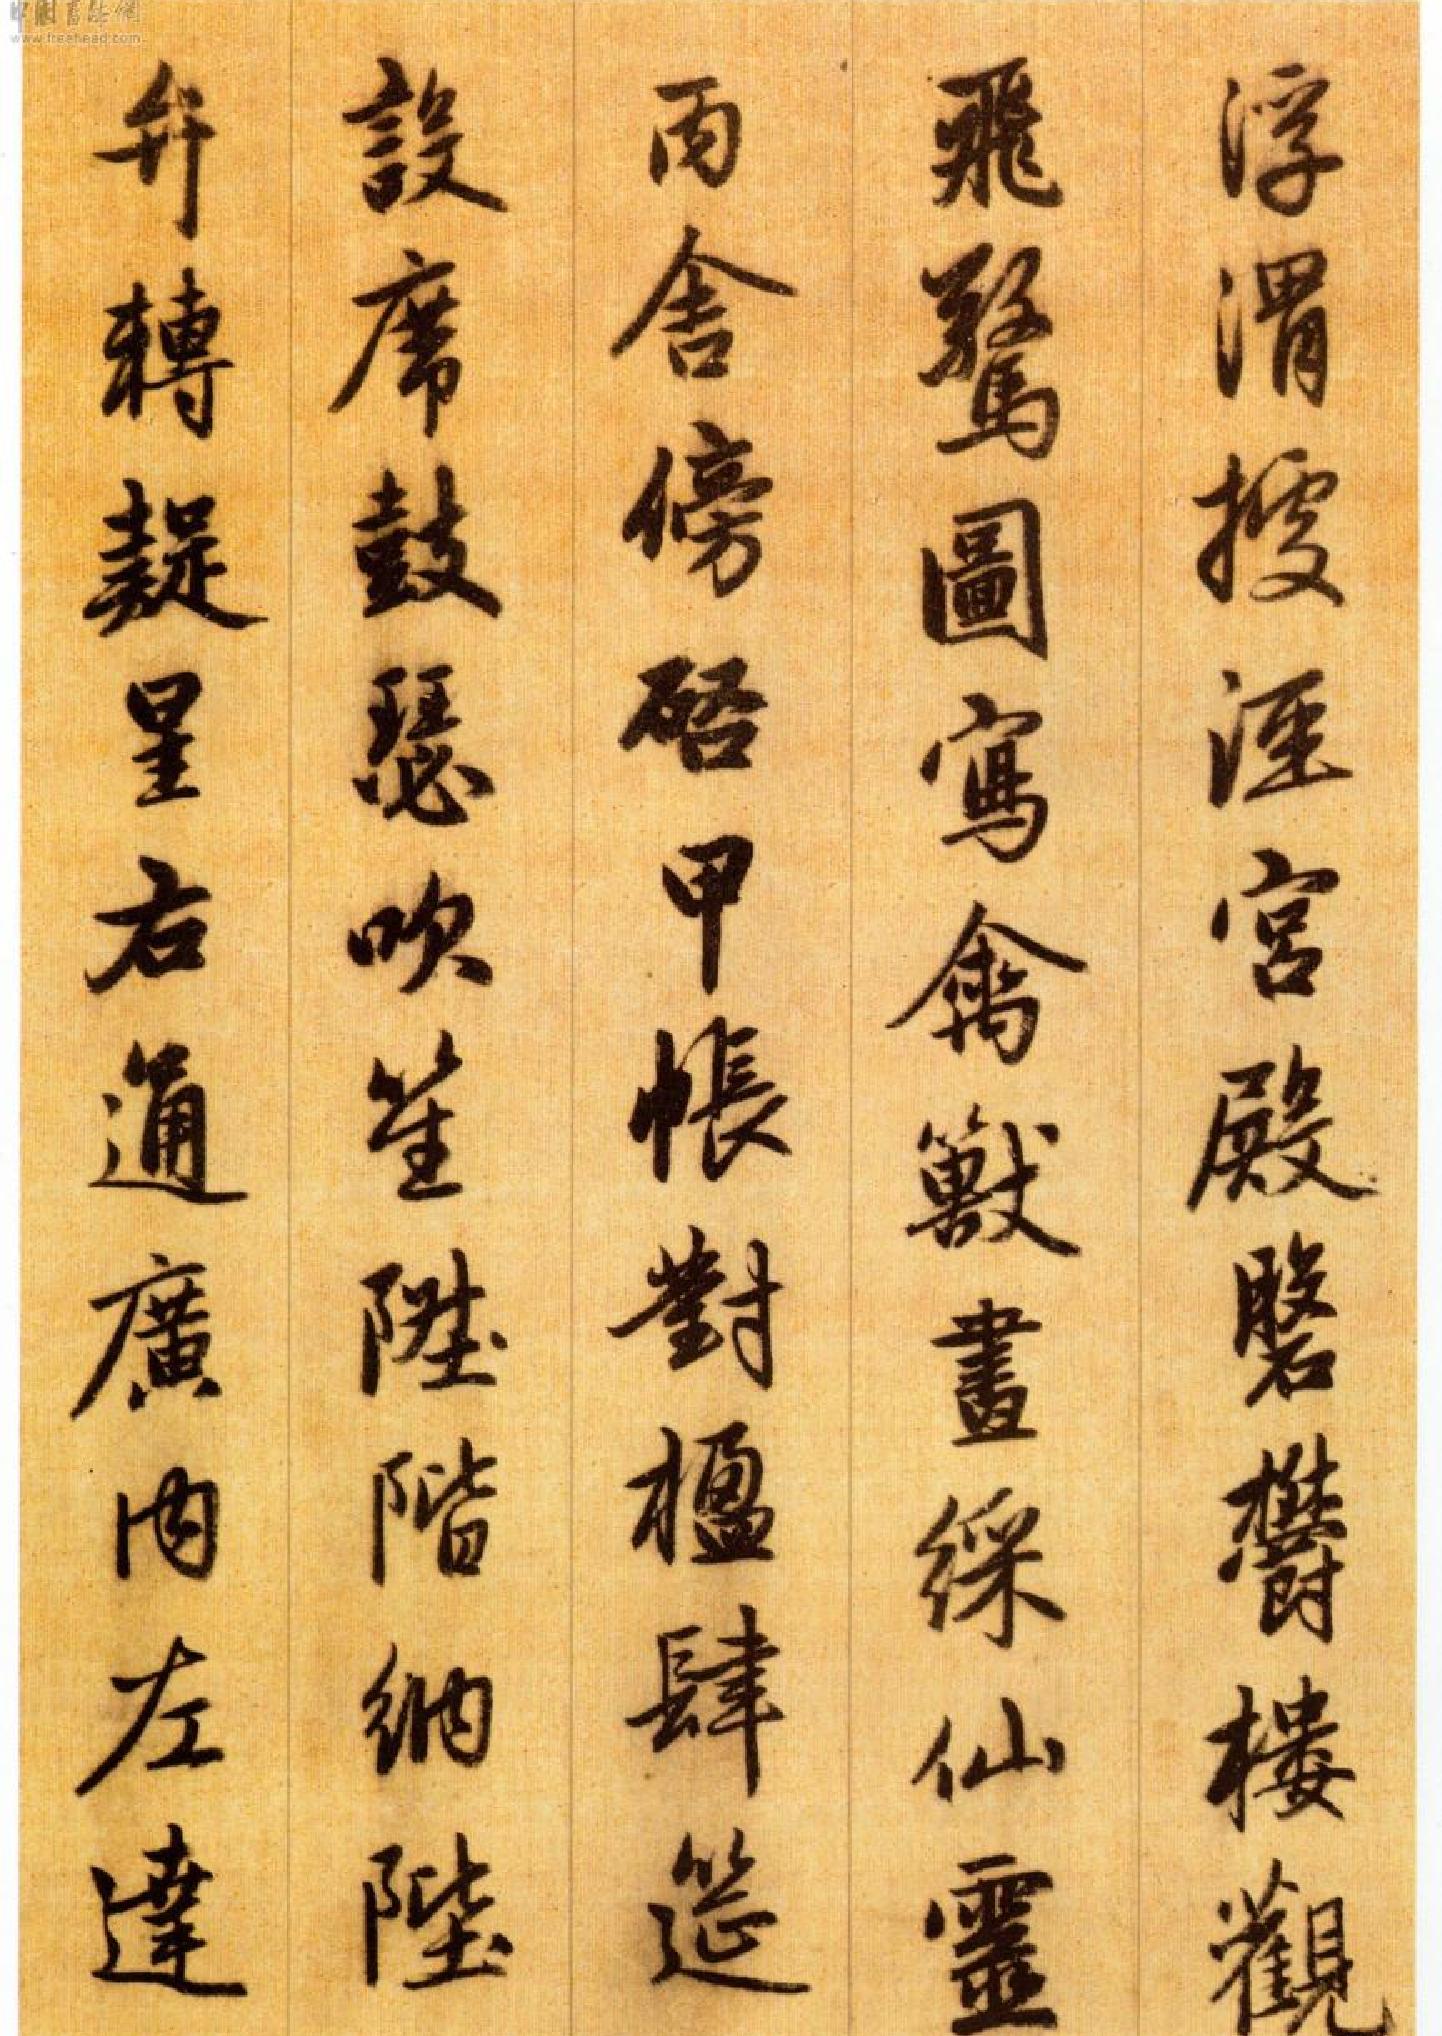 浮渭據涇宮殿磐欝樓觀
飛驚圖寫禽獸畫綵仙靈
丙舍傍啓甲帳對楹肆筵
設席鼓瑟吹笙陞階納陛
弁轉疑星右通廣內左達
中国书法网
www.freehead.com